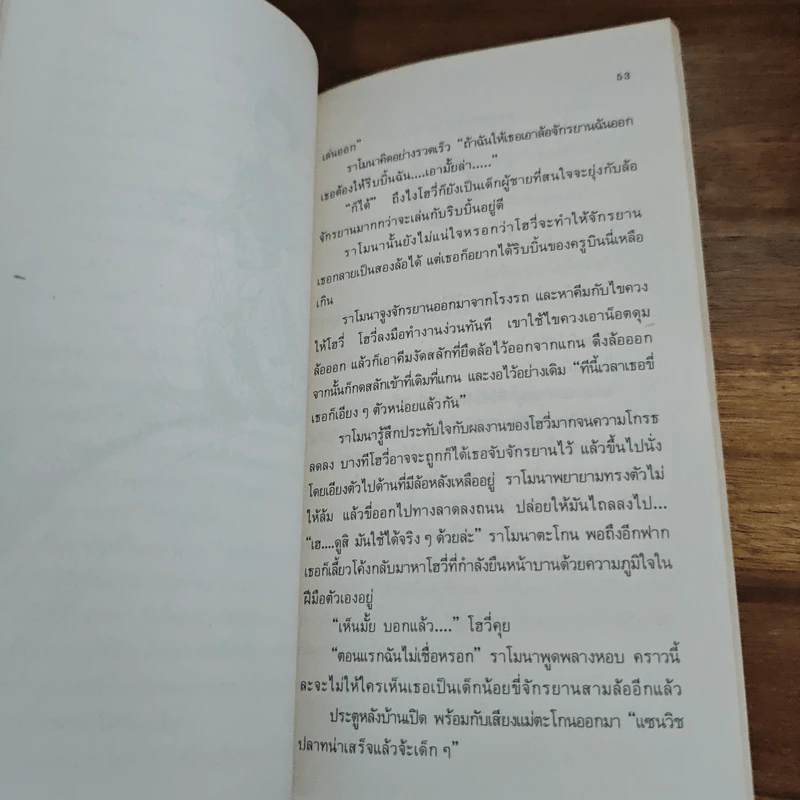 53
เล่นออก"
ราโมนาคิดอย่างรวดเร็ว "ถ้าฉันให้เธอเอาล้อจักรยานฉันออก
เธอต้องให้ริบบิ้นฉัน....เอามั้ยล่า....."
"ก็ได้" ถึงไงโฮวี่ก็ยังเป็นเด็กผู้ชายที่สนใจจะยุ่งกับล้อ
จักรยานมากกว่าจะเล่นกับริบบิ้นอยู่ดี
ราโมนานั้นยังไม่แน่ใจหรอกว่าโฮวี่จะทำให้จักรยาน
เธอกลายเป็นสองล้อได้ แต่เธอก็อยากได้ริบบิ้นของครูบินนี่เหลือ
เกิน
ราโมนาจูงจักรยานออกมาจากโรงรถ และหาคีมกับไขควง
ให้โฮวี่ โฮวี่ลงมือทำงานง่วนทันที เขาใช้ไขควงเอาน็อตดุม
ล้อออก แล้วก็เอาคีมงัดสลักที่ยึดล้อไว้ออกจากแกน ดึงล้อออก
จากนั้นก็กดสลักเข้าที่เดิมที่แกน และงอไว้อย่างเดิม "ทีนี้เวลาเธอขี่
เธอก็เอียง ๆ ตัวหน่อยแล้วกัน"
ราโมนารู้สึกประทับใจกับผลงานของโฮวี่มากจนความโกรธ
ลดลง บางทีโฮวี่อาจจะถูกก็ได้เธอจับจักรยานไว้ แล้วขึ้นไปนั่ง
โดยเอียงตัวไปด้านที่มีล้อหลังเหลืออยู่ ราโมนาพยายามทรงตัวไม่
ให้ล้ม แล้วขี่ออกไปทางลาดลงถนน ปล่อยให้มันไถลลงไป...
"เฮ....ดูสิ มันใช้ได้จริง ๆ ด้วยล่ะ" ราโมนาตะโกน พอถึงอีกฟาก
เธอก็เลี้ยวโค้งกลับมาหาโฮวี่ที่กำลังยืนหน้าบานด้วยความภูมิใจใน
ฝีมือตัวเองอยู่
"เห็นมั้ย บอกแล้ว...." โฮวี่คุย
"ตอนแรกฉันไม่เชื่อหรอก" ราโมนาพูดพลางหอบ คราวนี้
ละจะไม่ให้ใครเห็นเธอเป็นเด็กน้อยขี่จักรยานสามล้ออีกแล้ว
ประตูหลังบ้านเปิด พร้อมกับเสียงแม่ตะโกนออกมา "แซนวิช
ปลาทูน่าเสร็จแล้วจ้ะเด็ก ๆ"